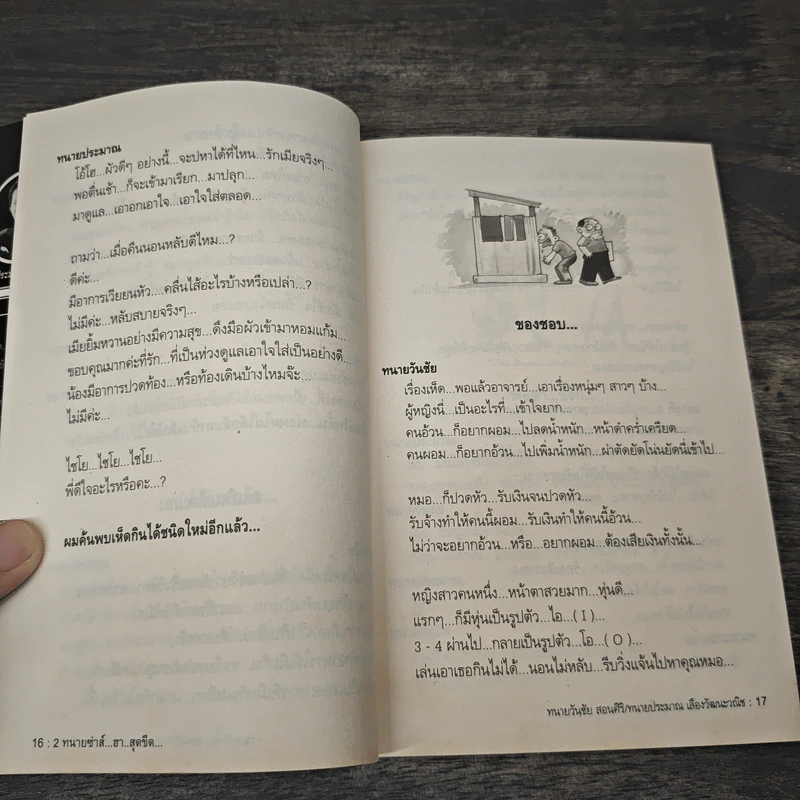 ทนายประมาณ
โอ้โฮ...ผัวดีๆ อย่างนี้...จะปหาได้ที่ไหน...รักเมียจริงๆ...
พอตื่นเช้า...ก็จะเข้ามาเรียก...มาปลุก...
มาดูแล...เอาอกเอาใจ...เอาใจใส่ตลอด...
ถามว่า...เมื่อคืนนอนหลับดีไหม...?
ดีค่ะ...
มีอาการเวียยนหัว....คลื่นไส้อะไรบ้างหรือเปล่า...?
ไม่มีค่ะ...หลับสบายจริงๆ...
เมียยิ้มหวานอย่างมีความสุข...ดึงมือผัวเข้ามาหอมแก้ม...
ขอบคุณมากค่ะที่รัก...ที่เป็นห่วงดูแลเอาใจใส่เป็นอย่างดี...
น้องมีอาการปวดท้อง...หรือท้องเดินบ้างไหมจ๊ะ...
ไม่มีค่ะ...
ไชโย...ไชโย...ไชโย...
พี่ดีใจอะไรหรือคะ...?
ผมค้นพบเห็ดกินได้ชนิดใหม่อีกแล้ว...
16 : 2 ทนายซ่าส์...ฮา..สุดขีด...
ของชอบ...
ทนายวันชัย
เรื่องเห็ด...พอแล้วอาจารย์...เอาเรื่องหนุ่มๆ สาวๆ บ้าง...
ผู้หญิงนี่...เป็นอะไรที่...เข้าใจยาก...
คนอ้วน...ก็อยากผอม...ไปลดน้ำหนัก...หน้าดำคร่ำเครียด...
คนผอม...ก็อยากอ้วน...ไปเพิ่มน้ำหนัก...ผ่าตัดยัดโน่นยัดนี่เข้าไป...
หมอ...ก็ปวดหัว...รับเงินจนปวดหัว...
รับจ้างทำให้คนนี้ผอม...รับเงินทำให้คนนี้อ้วน...
ไม่ว่าจะอยากอ้วน...หรือ...อยากผอม...ต้องเสียเงินทั้งนั้น...
หญิงสาวคนหนึ่ง...หน้าตาสวยมาก...หุ่นดี...
แรกๆ...ก็มีหุ่นเป็นรูปตัว...ไอ...( I )...
3 - 4 ผ่านไป...กลายเป็นรูปตัว...โอ...( O )...
เล่นเอาเธอกินไม่ได้...นอนไม่หลับ...รีบวิ่งแจ้นไปหาคุณหมอ...
ทนายวันชัย สอนศิริ/ทนายประมาณ เลืองวัฒนะวณิช : 17